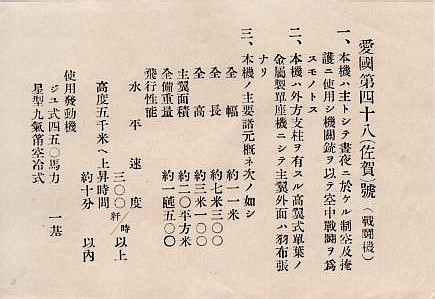 愛國第四十八(佐賀)號(戰鬪機)
一、本機ハ主トシテ晝夜ニ於ケル制空及掩
護ニ使用シ機關銃ヲ以テ空中戰鬪ヲ爲
スモノトス
二、本機ハ外方支柱ヲ有スル高翼式單葉ノ
金屬製單座機ニシテ主翼外面ハ羽布張
ナリ
三、本機ノ主要諸元概ネ次ノ如シ
全幅 約一一米
全長 約七米三〇〇
全高 約三米一〇〇
主翼面積 約二〇平方米
全備重量 約一瓲五〇〇
飛行性能
水平速度 三〇〇粁/時以上
高度五千米ヘ上昇時間 約十分以内
使用發動機
ジユ式四五〇馬力 一基
星型九氣筩空冷式